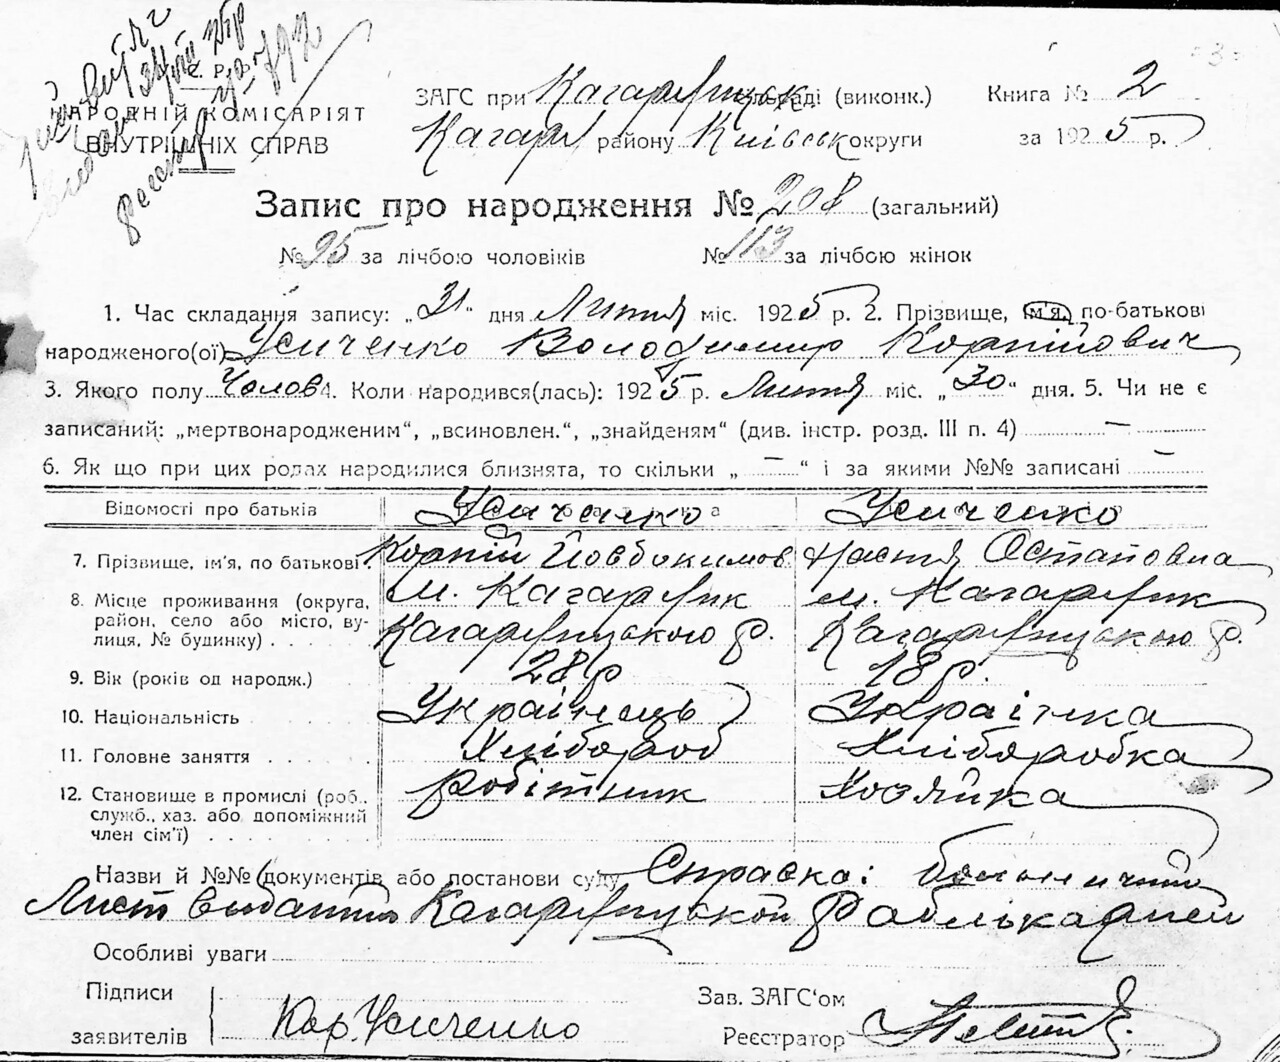 С. Р. Р.
НАРОДНІЙ КОМІСАРІЯТ
ВНУТРІШНІХ СПРАВ
ЗАГС при Кагарлицьк раді (виконк.) Книга № 2
Кагарл району Київськ округи за 1925 р.
Запис про народження № 208 (загальний)
№ 95 за лічбою чоловіків № 113 за лічбою жінок
1. Час складання запису: „31“ дня Липня міс. 1925 р. 2. Прізвище, ім'я, по-батькові
народженого(ої) Усиченко Володимир Корнійович
3. Якого полу Чолов 4. Коли народився(лась): 1925 р. Липня міс. „30“ дня. 5. Чи не є
записаний: „мертвонародженим“, „всиновлен.“, „знайденям“ (див. інстр. розд. III п. 4) —
6. Як що при цих родах народилися близнята, то скільки „ — “ і за якими №№ записані —
Відомості про батьків Усиченко Усиченко
7. Прізвище, ім'я, по батькові Корній Йовдокимов Настя Остаповна
8. Місце проживання (округа, район, село або місто, вулиця, № будинку) м. Кагарлик м. Кагарлик
Кагарлицького р. Кагарлицького р.
9. Вік (років од народж.) 28 р 18 р.
10. Національність Українець Українка
11. Головне заняття Хлібороб Хліборобка
12. Становище в промислі (роб., служб., хаз. або допоміжний член сім'ї) робітник Хозяйка
Назви й №№ документів або постанови суду Справка:
Лист Кагарлицькой
Особливі уваги
Підписи заявителів Кор. Усиченко
Зав. ЗАГС'ом
Реєстратор